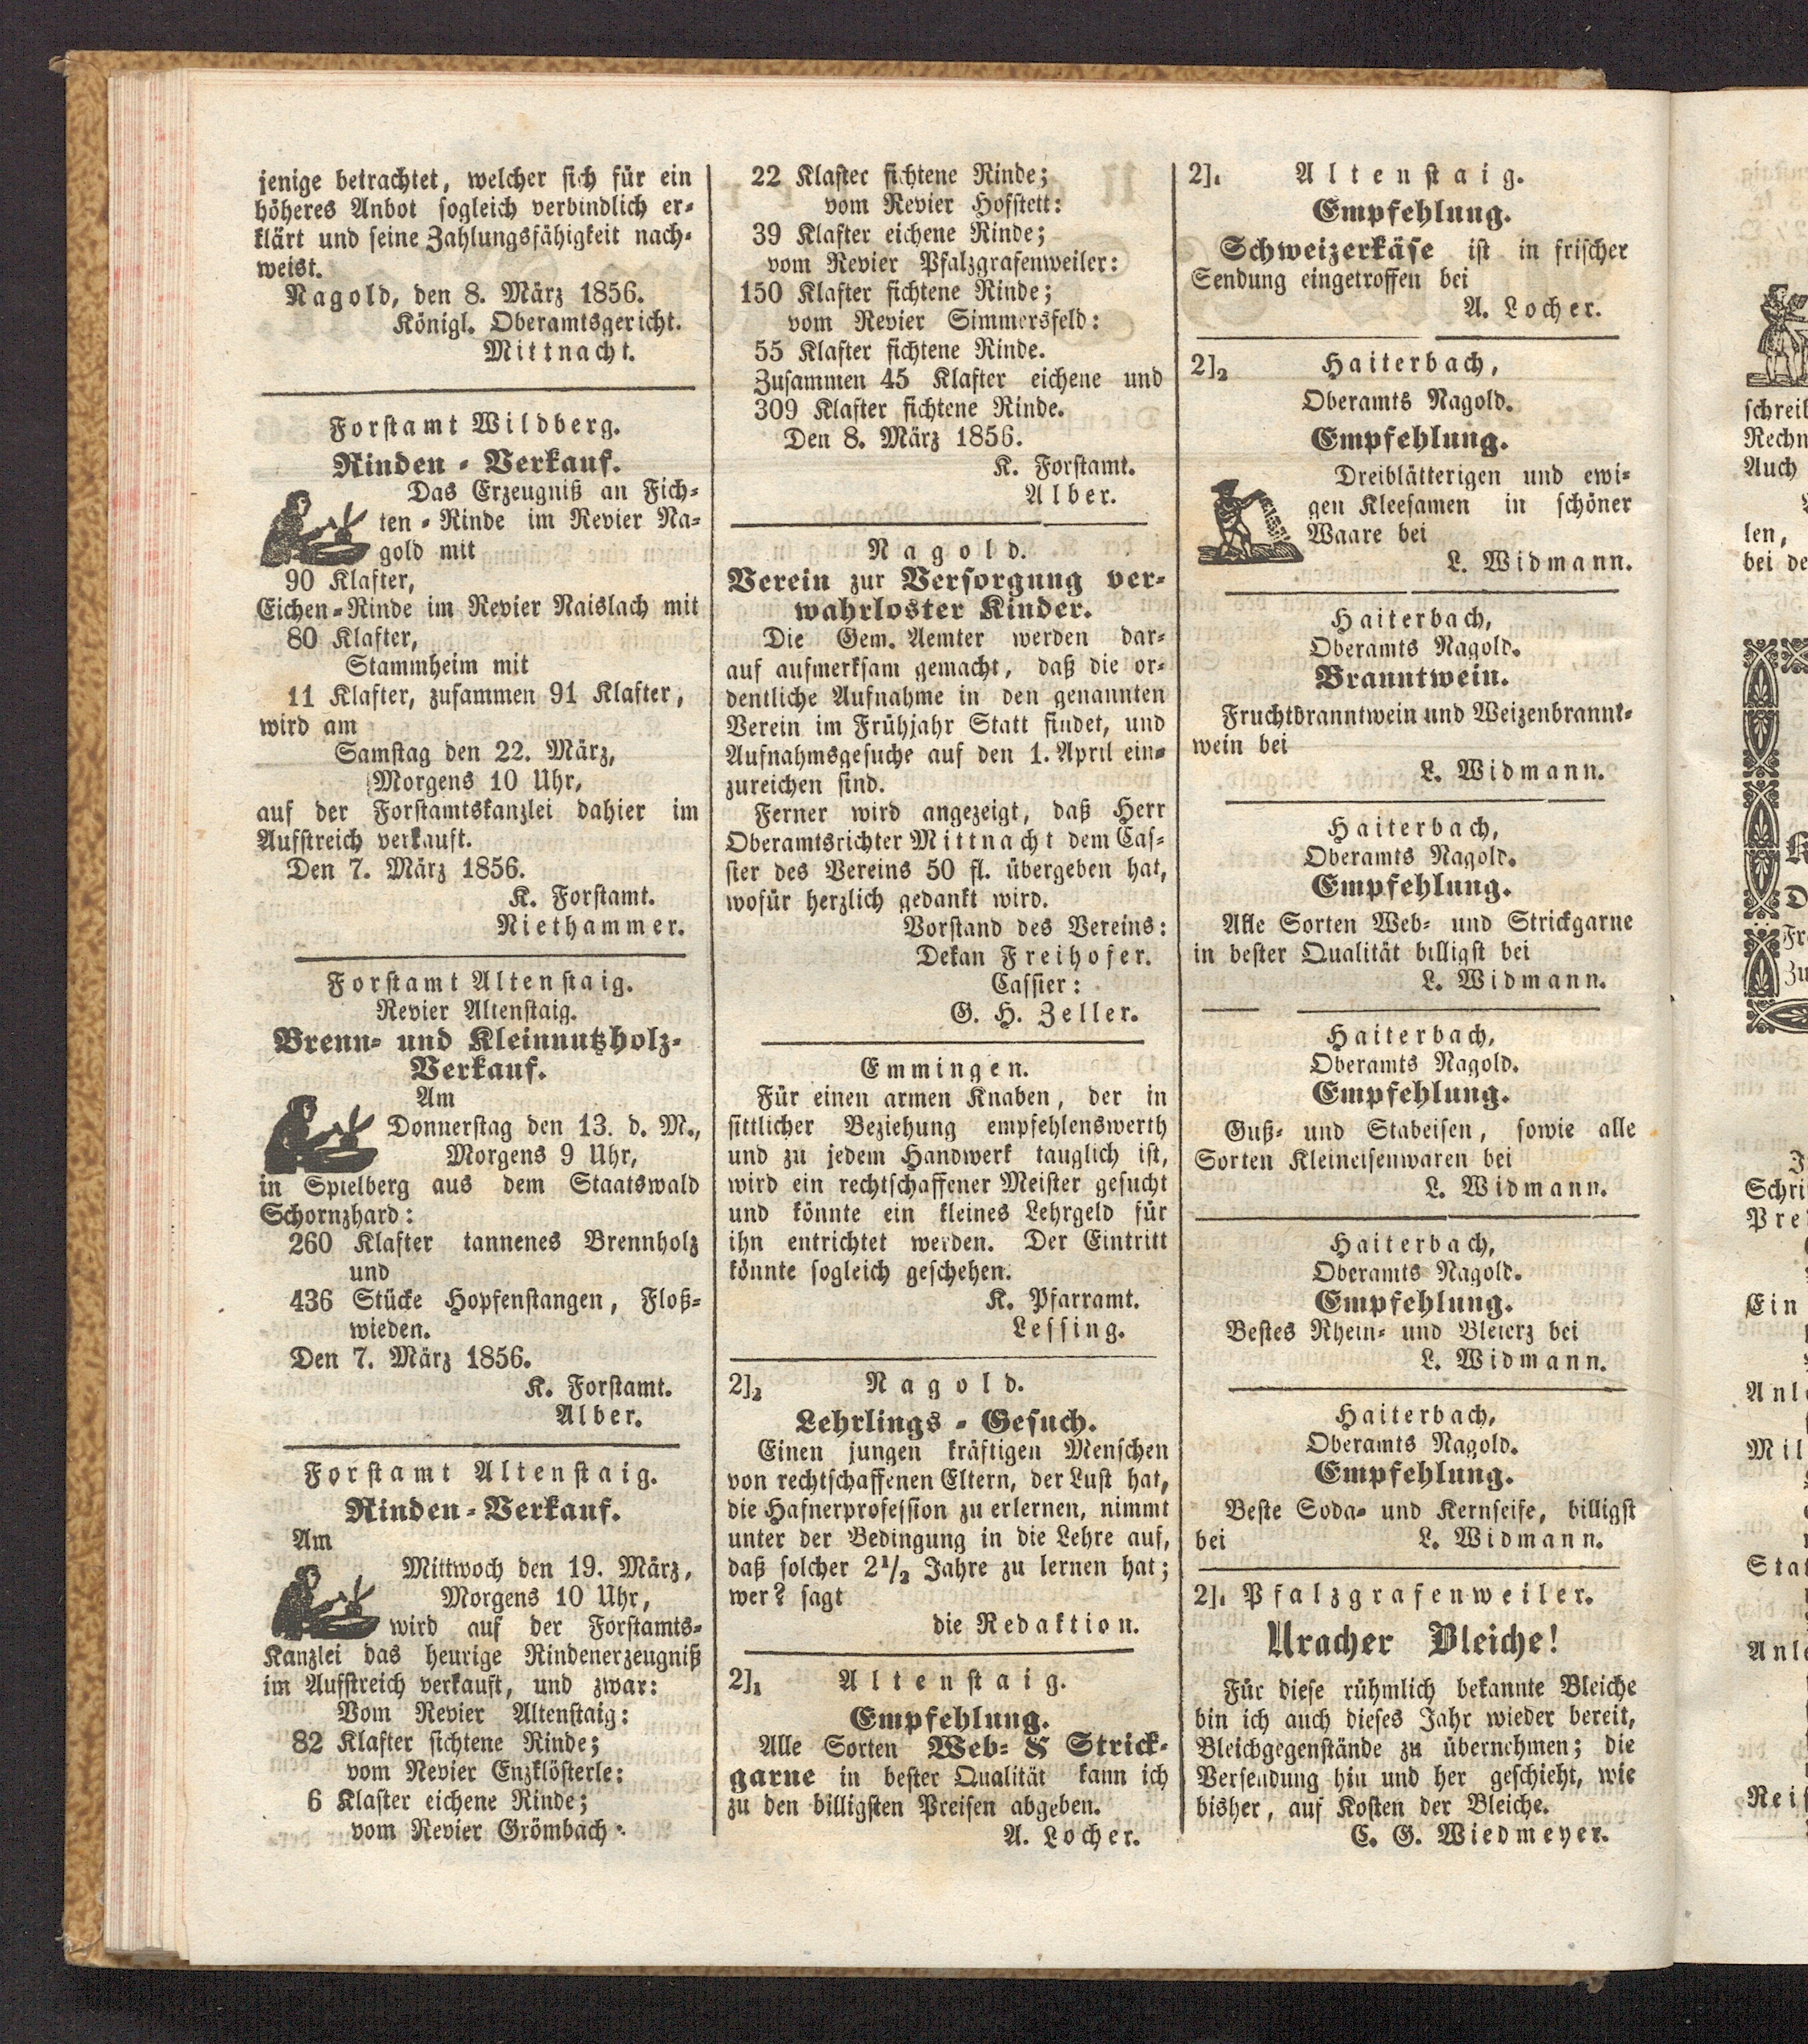 jenige betrachtet, welcher sich für ein
höheres Anbot sogleich verbindlich er-
klärt und seine Zahlungsfähigkeit nach-
weist.
Nagold, den 8. März 1856.
Königl. Oberamtsgericht.
Mittnacht.
Forstamt Wildberg.
Rinden-Verkauf.
Das Erzeugniß an Fich-
ten-Rinde im Revier Na-
gold mit
90 Klafter,
Eichen-Rinde im Revier Naislach mit
80 Klafter,
Stammheim mit
11 Klafter, zusammen 91 Klafter,
wird am
Samstag den 22. März,
Morgens 10 Uhr,
auf der Forstamtskanzlei dahier im
Aufstreich verkauft.
Den 7. März 1856.
K. Forstamt.
Niethammer.
Forstamt Altenstaig.
Revier Altenstaig.
Brenn- und Kleinnutzholz-
Verkauf.
Am
Donnerstag den 13. d. M.,
Morgens 9 Uhr,
in Spielberg aus dem Staatswald
Schornzhard:
260 Klafter tannenes Brennholz
und
436 Stücke Hopfenstangen, Floß-
wieden.
Den 7. März 1856.
K. Forstamt.
Alber.
Forstamt Altenstaig.
Rinden-Verkauf.
Am
Mittwoch den 19. März,
Morgens 10 Uhr,
wird auf der Forstamts-
Kanzlei das heurige Rindenerzeugniß
im Aufstreich verkauft, und zwar:
Vom Revier Altenstaig:
82 Klafter fichtene Rinde;
vom Revier Enzklösterle:
6 Klafter eichene Rinde;
vom Revier Grömbach:
22 Klafter fichtene Rinde;
vom Revier Hofstett:
39 Klafter eichene Rinde;
vom Revier Pfalzgrafenweiler:
150 Klafter fichtene Rinde;
vom Revier Simmersfeld:
55 Klafter fichtene Rinde.
Zusammen 45 Klafter eichene und
309 Klafter fichtene Rinde.
Den 8. März 1856.
K. Forstamt.
Alber.
Nagold.
Verein zur Versorgung ver-
wahrloster Kinder.
Die Gem. Aemter werden dar-
auf aufmerksam gemacht, daß die or-
dentliche Aufnahme in den genannten
Verein im Frühjahr Statt findet, und
Aufnahmsgesuche auf den 1. April ein-
zureichen sind.
Ferner wird angezeigt, daß Herr
Oberamtsrichter Mittnacht dem Cas-
sier des Vereins 50 fl. übergeben hat,
wofür herzlich gedankt wird.
Vorstand des Vereins:
Dekan Freihofer.
Cassier:
G. H. Zeller.
Emmingen.
Für einen armen Knaben, der in
sittlicher Beziehung empfehlenswerth
und zu jedem Handwerk tauglich ist,
wird ein rechtschaffener Meister gesucht
und könnte ein kleines Lehrgeld für
ihn entrichtet werden. Der Eintritt
könnte sogleich geschehen.
K. Pfarramt.
Lessing.
2]2 Nagold.
Lehrlings-Gesuch.
Einen jungen kräftigen Menschen
von rechtschaffenen Eltern, der Lust hat,
die Hafnerprofession zu erlernen, nimmt
unter der Bedingung in die Lehre auf,
daß solcher 2 1/2 Jahre zu lernen hat;
wer? sagt
die Redaktion.
2]1 Altenstaig.
Empfehlung.
Alle Sorten Web- & Strick-
garne in bester Qualität kann ich
zu den billigsten Preisen abgeben.
A. Locher.
2]1 Altenstaig.
Empfehlung.
Schweizerkäse ist in frischer
Sendung eingetroffen bei
A. Locher.
2]2 Haiterbach,
Oberamts Nagold.
Empfehlung.
Dreiblätterigen und ewi-
gen Kleesamen in schöner
Waare bei
L. Widmann.
Haiterbach,
Oberamts Nagold.
Branntwein.
Fruchtbranntwein und Weizenbrannt-
wein bei
L. Widmann.
Haiterbach,
Oberamts Nagold.
Empfehlung.
Alle Sorten Web- und Strickgarne
in bester Qualität billigst bei
L. Widmann.
Haiterbach,
Oberamts Nagold.
Empfehlung.
Guß- und Stabeisen, sowie alle
Sorten Kleineisenwaren bei
L. Widmann.
Haiterbach,
Oberamts Nagold.
Empfehlung.
Bestes Rhein- und Bleierz bei
L. Widmann.
Haiterbach,
Oberamts Nagold.
Empfehlung.
Beste Soda- und Kernseife, billigst
bei L. Widmann.
2]1 Pfalzgrafenweiler.
Uracher Bleiche!
Für diese rühmlich bekannte Bleiche
bin ich auch dieses Jahr wieder bereit,
Bleichgegenstände zu übernehmen; die
Versendung hin und her geschieht, wie
bisher, auf Kosten der Bleiche.
C. G. Wiedmeyer.